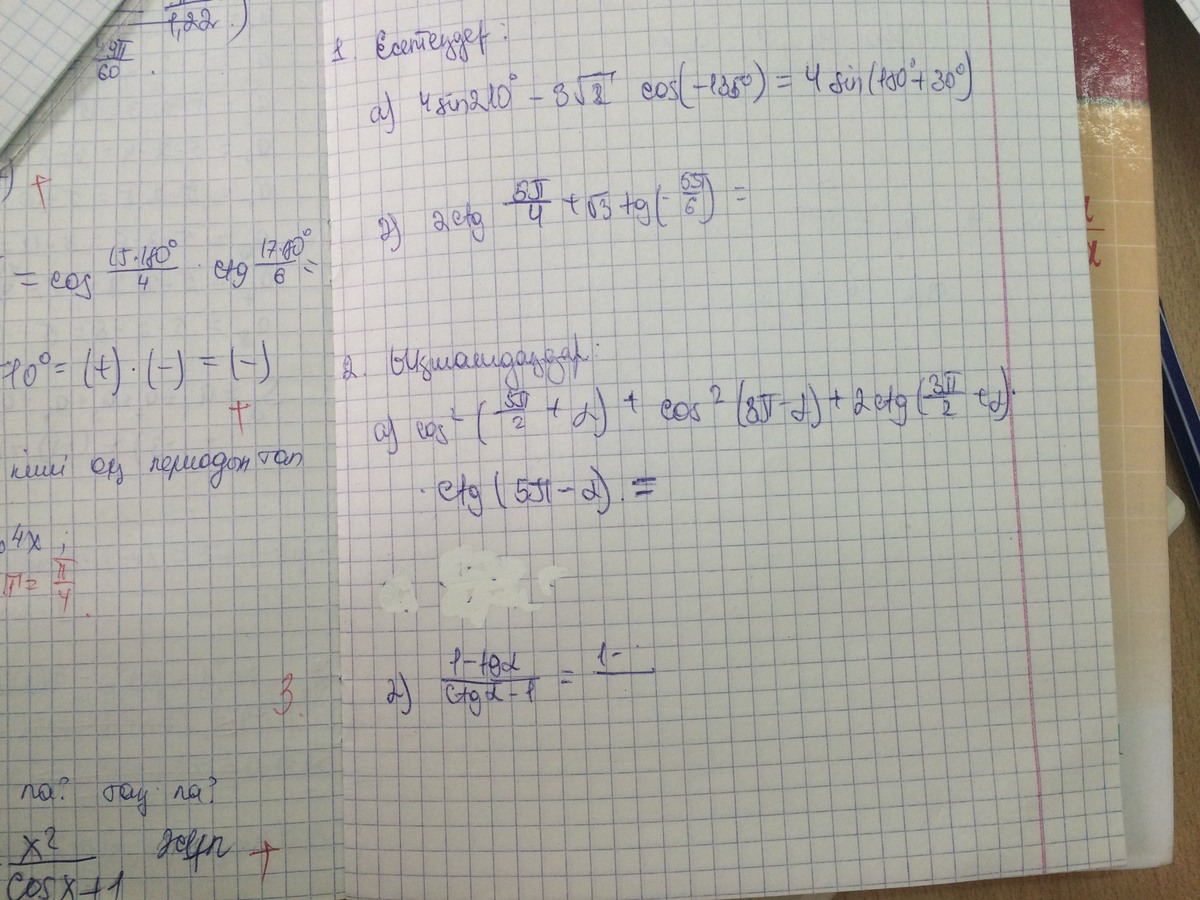 1,22 )
9π/60 .
+
= cos 15·180°/4 · ctg 17·180°/6 =
10° = (+) · (-) = (-)
+
оң периодын тап
4x ;
π = π/4
3.
па? тақ па?
x²/cosx+1 жұп +
1. Есептеңдер:
a) 4sin210° - 3√2 cos(-135°) = 4 sin(180°+30°)
2) 2ctg 5π/4 + √3 tg(-5π/6) =
2. Ықшамдаңдар:
a) cos² (5π/2 + α) + cos² (3π-α) + 2ctg (3π/2 + α) ·
· ctg (5π-α) =
2) 1-tgα/ctgα-1 = 1-